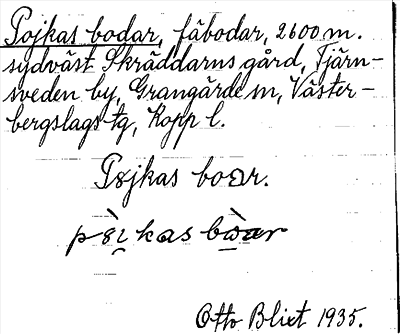 Pojkas bodar, fäbodar, 2600 m.
sydväst Skräddarns gård, Tjärn-
sveden by, Grangärde sn, Väster-
bergslags tg, Kopp l.
Pojkas boar.
Otto Blixt 1935.